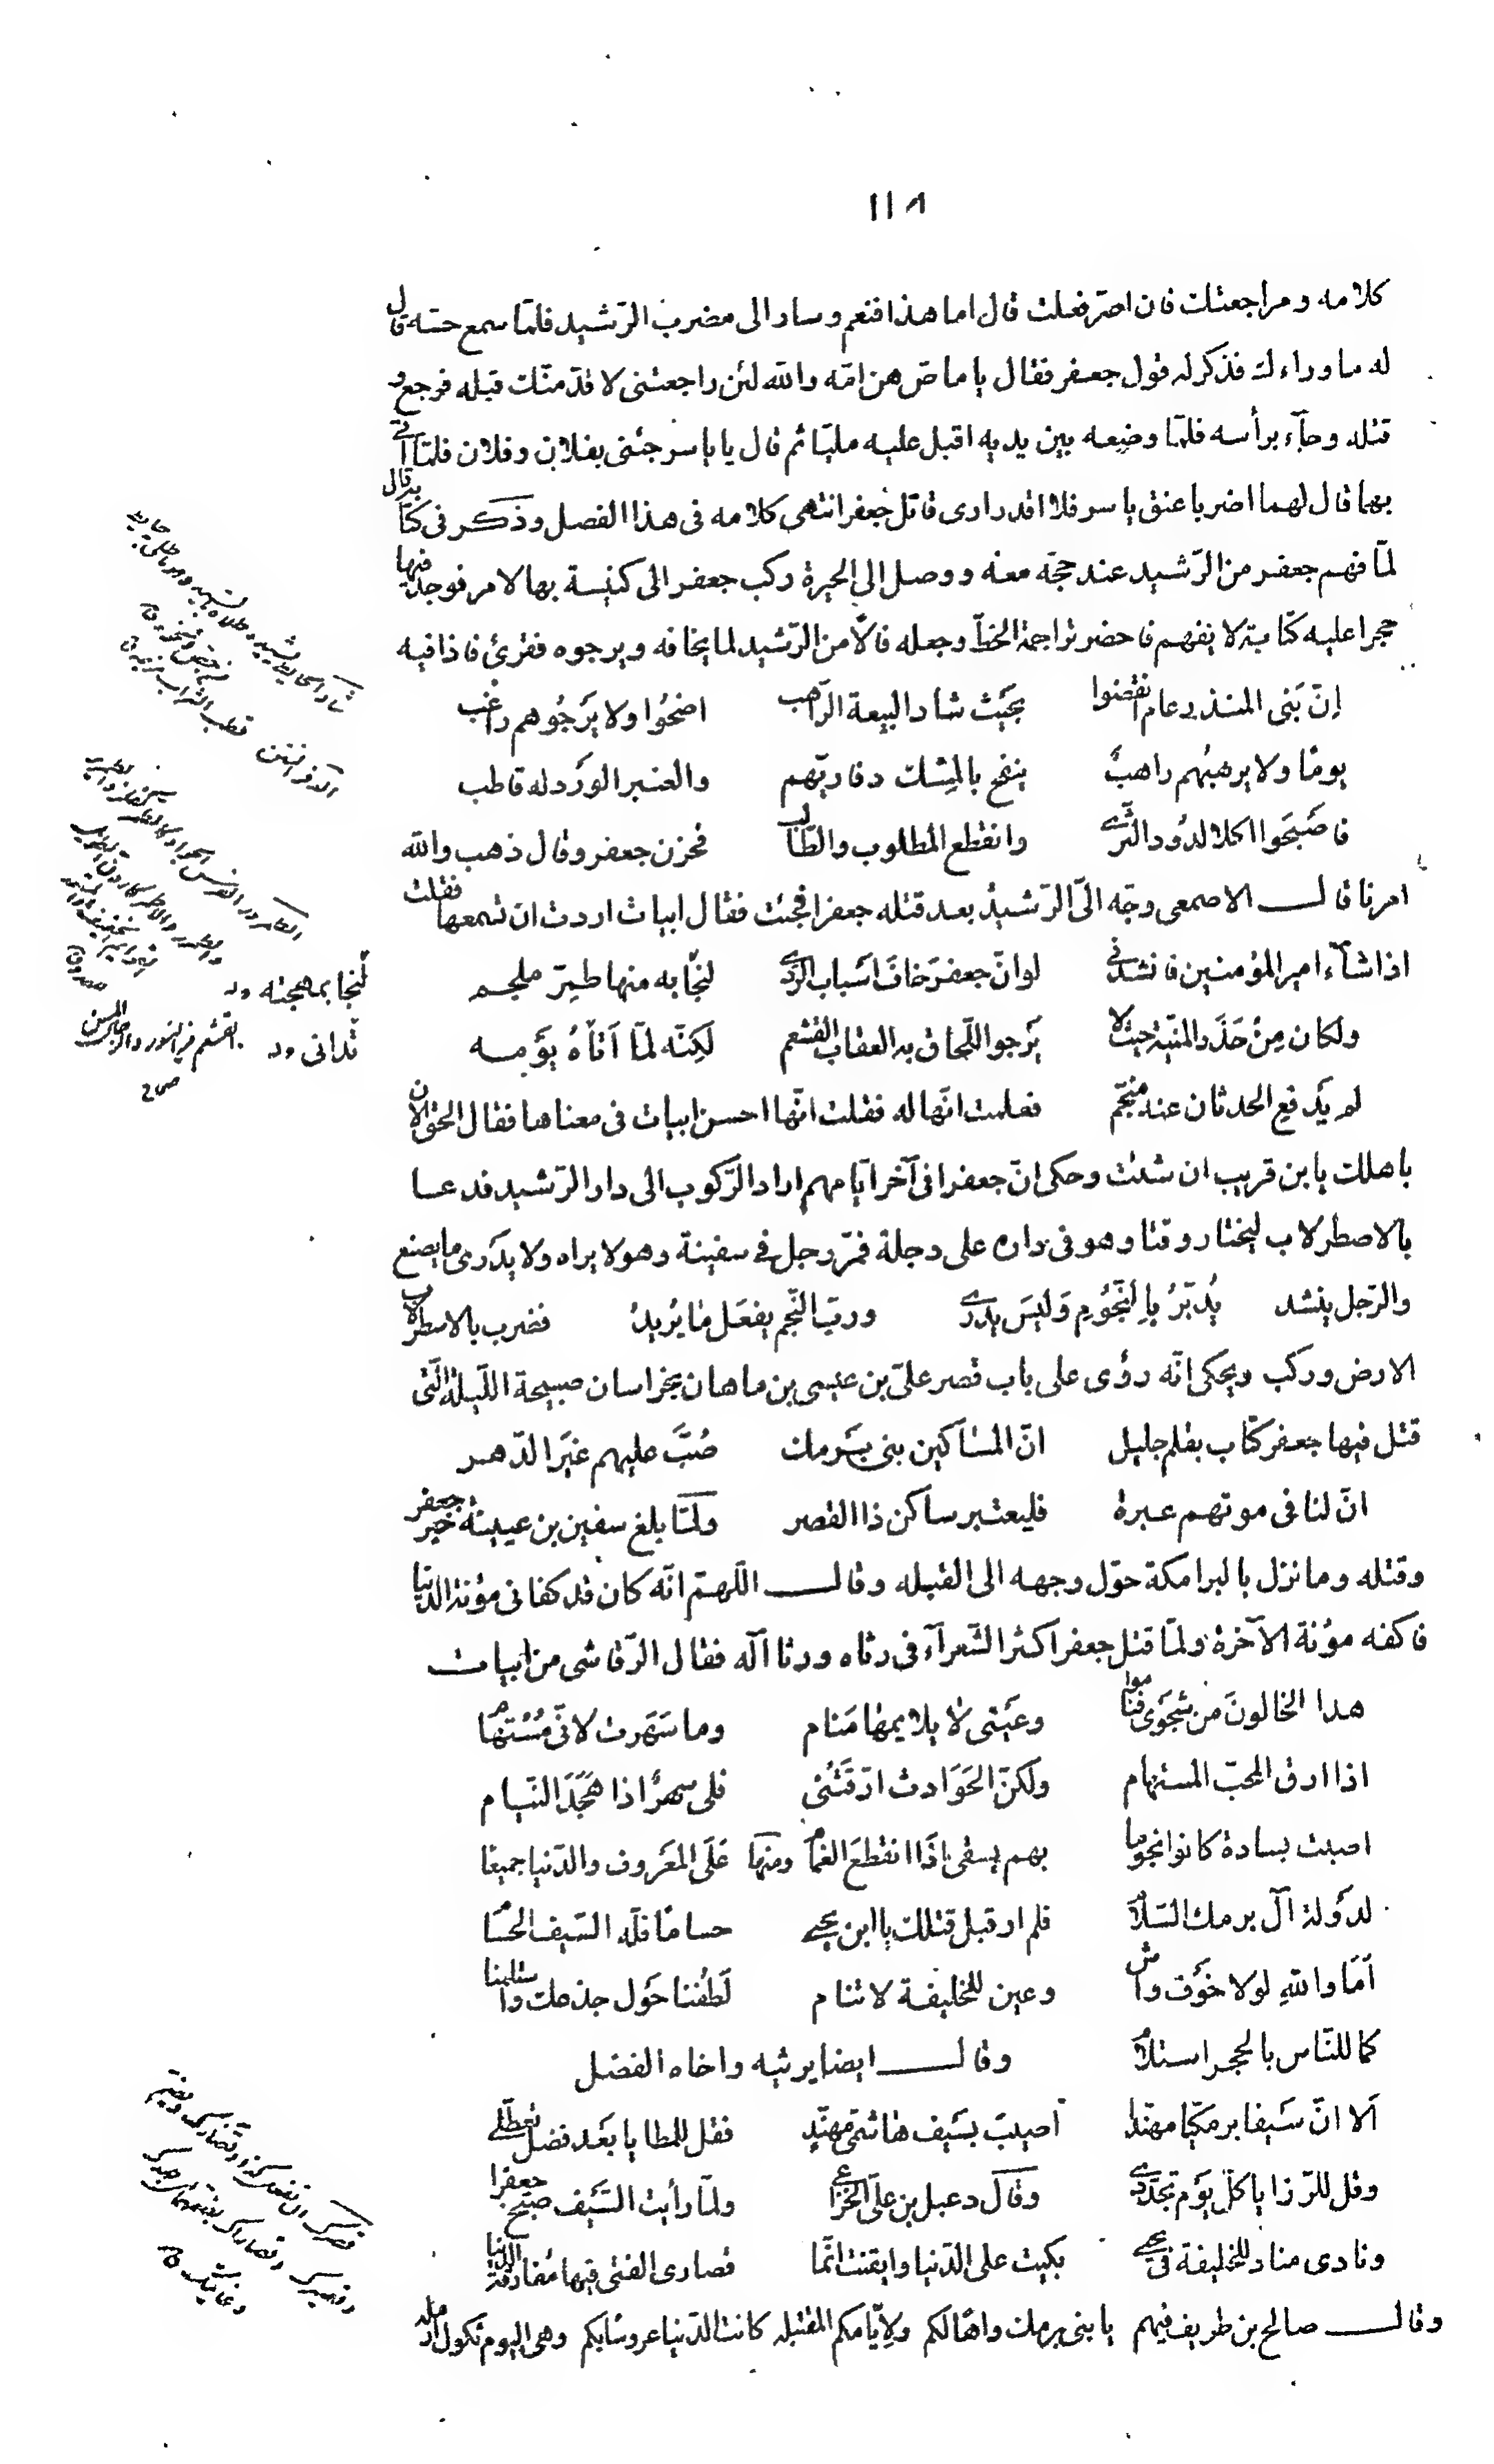 ١١٨
كلامه ومراجعتك فان اصرّ فعلت قال اما هذا فنعم وسار الى مضرب الرّشيد فلمّا سمع حسّه قال
له ما وراءك فذكر له قول جعفر فقال يا ماصّ هن امّه والله لئن راجعتنى لاقدّمنّك قبله فرجع و
قتله وجآء برأسه فلمّا وضعه بين يديه اقبل عليه مليّا ثم قال يا ياسر جئنى بفلان وفلان فلمّا اتى
بهما قال لهما اضربا عنق ياسر فلا اقدر ارى قاتل جعفر انتهى كلامه فى هذا الفصل وذكر فى كتابه قال
لمّا فهم جعفر من الرّشيد عند حجّه معه ووصل الى الحيرة ركب جعفر الى كنيسة بها لامر فوجد فيها
حجرا عليه كتابة لا يفهم فاحضر تراجمة الخطّ وجعله فالًا من الرّشيد لما يخافه ويرجوه فقرئ فاذا فيه
إنّ بَنى المنذر عام انقضوا بحَيث شاد البيعة الرّاهب اضحُوا ولا يَرجُوهم راغب
يومًا ولا يرهبُهم راهبٌ ينفح بالمِسك دفاريّهم والعنبر الورَد له قاطب
فاصَبحَوا اكلا لدُود الثّرى وانقطع المطلوب والطّالب فحزن جعفر وقال ذهب والله
امرنا قال الاصمعى وجّه الىّ الرّشيدُ بعد قتله جعفرا فجئت فقال ابيات اردت ان تسمعها فقلت
اذا شآء امير المؤمنين فانشدنى لو انّ جعفرَ خافَ اسَباب الرّدى لنجّا به منها طمِرّ ملجم
لنجا بمهجته
ولكان مِنْ حَذَر المنيّة حيثُ لا يَرجو اللّحاق به العقاب القشعم لَكِنّه لمّا اَتاهُ يَومه
تدانى
لم يدَفعِ الحدثان عنه منجّم فعلمت انّها له فقلت انّها احسن ابيات فى معناها فقال الحق الان
باهلك يا بن قريب ان شئت وحكى انّ جعفرا فى آخر ايّامهم اراد الرّكوب الى دار الرّشيد فدعا
بالاصطرلاب ليختار وقتا وهو فى داره على دجلة فمرّ رجل فى سفينة وهو لا يراه ولا يدرى ما يصنع
والرّجل ينشد يُدبّرُ بِالنّجُومِ وَليسَ يدرى وربّ النّجم يفعَل مٰا يُريدُ فضرب بالاسطرلاب
الارض وركب ويحكى انّه رؤى على باب قصر علىّ بن عيسى بن ماهان بخراسان صبيحة اللّيلة الّتى
قتل فيها جعفر كتاب بقلم جليل انّ المسَاكين بنى بَرمك صُبَّ عليهم غيَر الدّهر
انّ لنا فى موتهم عبرة فليعتبر ساكن ذا القصر ولمّا بلغ سفين بن عيينة خبر جعفر
وقتله وما نزل بالبرامكة حوّل وجهه الى القبله وقال اللّهمّ انّه كان قد كفانى مؤنة الدّنيا
فاكفه مؤنة الآخرة ولمّا قتل جعفر اكثر الشّعرآء فى رثاه ورثا آله فقال الرّقاشى من ابيات
هدا الخالونَ من شجَوى فناموا وعيَنى لا يلايمها مَنام وما سَهَرت لانّى مُسْتهٰام
اذا ارق المحبّ المستهام ولكنّ الحَوَادث ارّقَتْنى فلى سهرٌ اذا هَجَدَ النّيام
اصبت بسادة كانوا نجوما بهم يسقى اذَا انقطعَ الغمام ومنها عَلَى المعَروف والدّنيا جميعًا
لدَولة آل برمك السّلام فلم ار قبل قتلك يا ابن يحيى حسامًا فلّه السّيف الحسام
اَمَا واللهِ لولا خوَف واش وعين للخليفة لا تنام لَطُفنا حَول جذعك واستلمنا
كما للنّاس بالحجر استلام وقال ايضا يرثيه واخاه الفضل
اَلا انّ سَيفا برمكيّا مهنّدا اصيبَ بسَيف هٰاشمىّ مهنّدٍ فقل للمطايا بعَد فضل تعطّلى
وقل للرّزايا كلّ يوَم تجدّدى وقال دعبل بن علىّ الخزاعى ولمّا رأيت السّيَف صبّح جعفرا
ونادى مناد للخليفة فى يحيى بكيت على الدّنيا وايقنت انّما قصارى الفتى فيها مُفارقة الدّنيا
وقال صالح بن طريف فيهم يا بنى برمك واهًا لكم ولايّامكم المقتبله كانت الدّنيا عروسًا بكم وهى اليوم ثكول ارمله